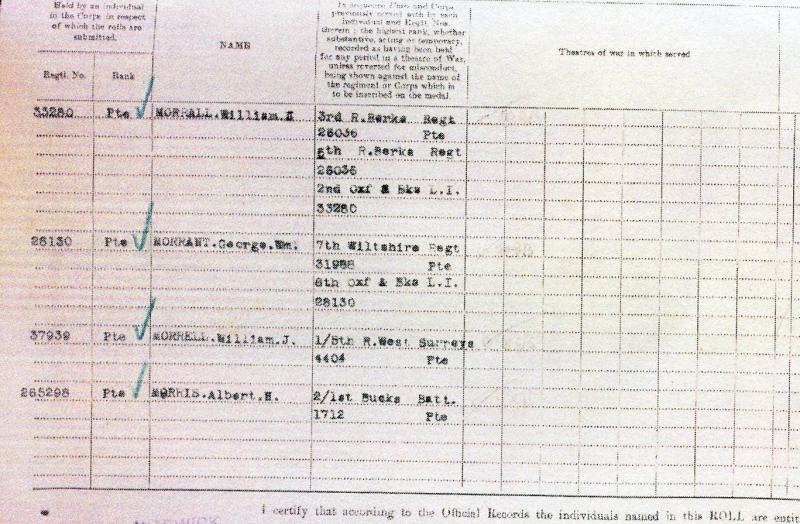 Held by an individual
in the Corps in respect
of which the rolls are
submitted.
Regtl. No.
Rank
NAME
previously served with by each
individual and Regtl. Nos.
therein ; the highest rank, whether
substantive, acting or temporary,
recorded as having been held
for any period in a theatre of War,
unless reverted for misconduct,
being shown against the name of
the regiment or Corps which is
to be inscribed on the medal.
Theatres of war in which served
33280 Pte MORRALL.William.H 3rd R.Berks Regt
26036 Pte
5th R.Berks Regt
26036
2nd Oxf & Bks L.I.
33280
28130 Pte MORRANT.George.Wm. 7th Wiltshire Regt
31988 Pte
6th Oxf & Bks L.I.
28130
37939 Pte MORRELL.William.J. 1/5th R.West Surreys
4404 Pte
265298 Pte MORRIS.Albert.H. 2/1st Bucks Batt.
1712 Pte
I certify that according to the Official Records the individuals named in this ROLL are